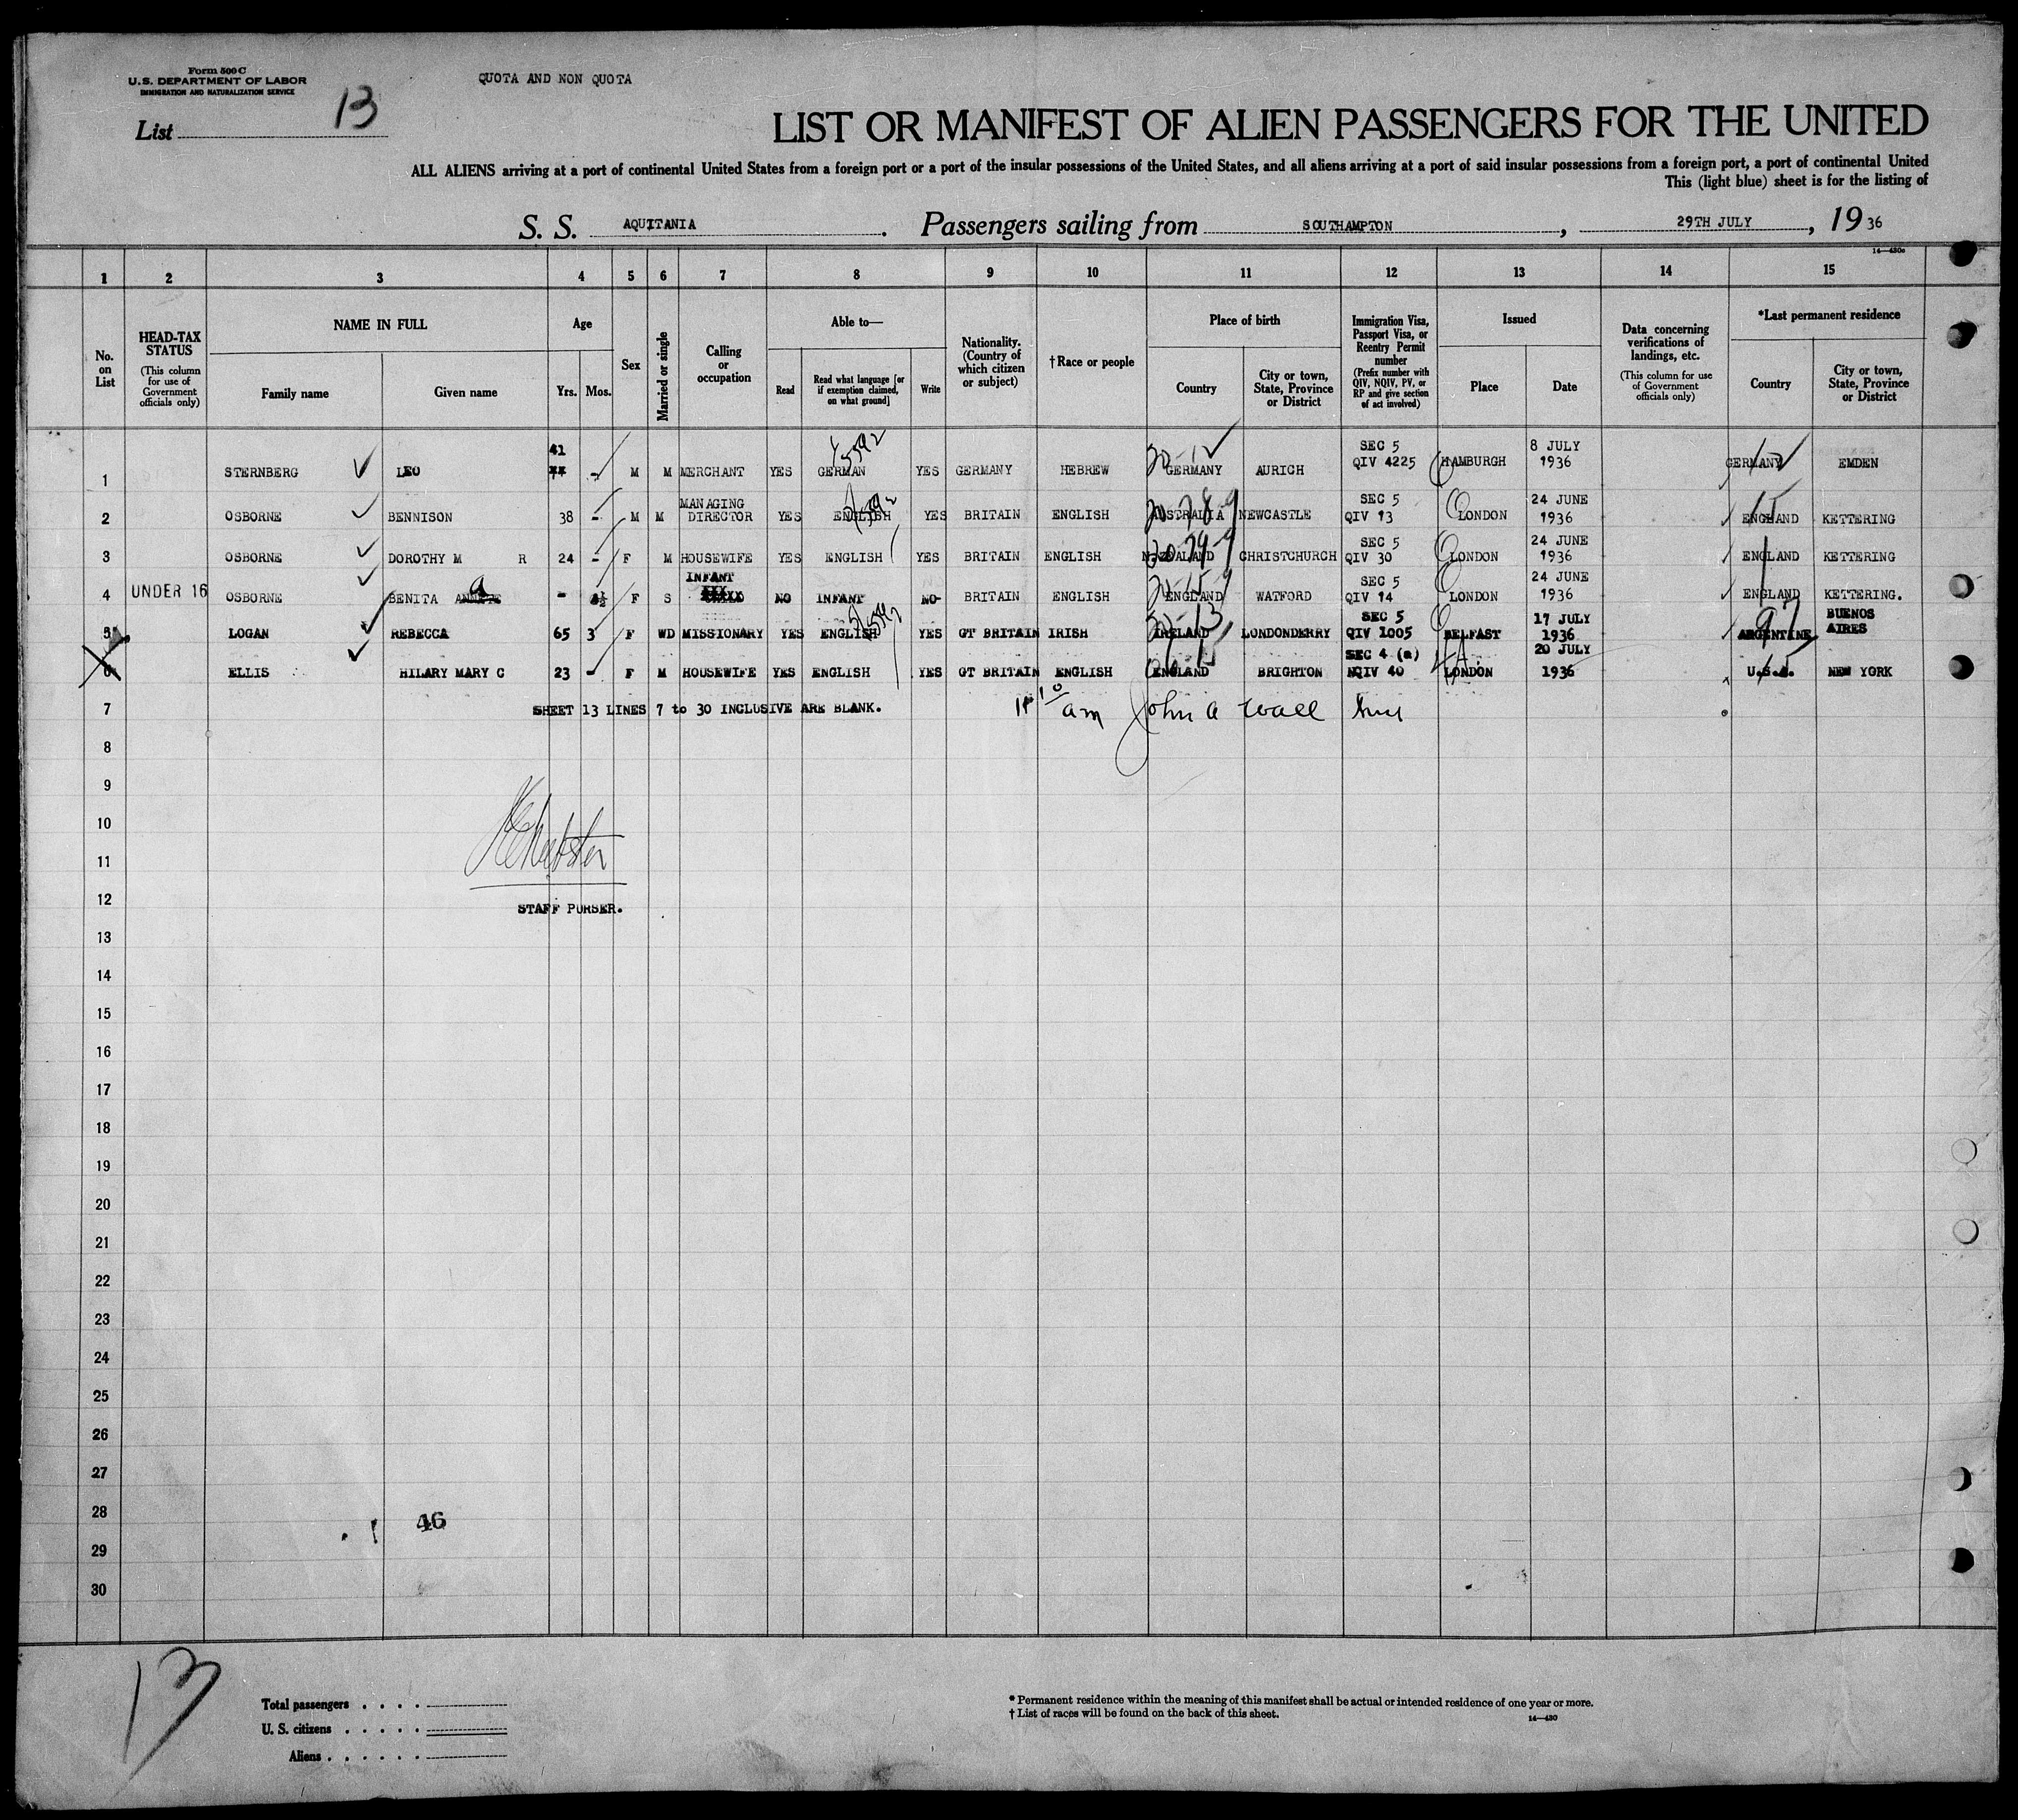 Form 500 C
U.S. DEPARTMENT OF LABOR
IMMIGRATION AND NATURALIZATION SERVICE
QUOTA AND NON QUOTA
List 13
LIST OR MANIFEST OF ALIEN PASSENGERS FOR THE UNITED
ALL ALIENS arriving at a port of continental United States from a foreign port or a port of the insular possessions of the United States, and all aliens arriving at a port of said insular possessions from a foreign port, a port of continental United
This (light blue) sheet is for the listing of
S. S. AQUITANIA . Passengers sailing from SOUTHAMPTON , 29TH JULY , 19 36
14—430c
1 2 3 4 5 6 7 8 9 10 11 12 13 14 15
No. on List
HEAD-TAX STATUS (This column for use of Government officials only)
NAME IN FULL Family name Given name
Age Yrs. Mos.
Sex
Married or single
Calling or occupation
Able to— Read Read what language [or if exemption claimed, on what ground] Write
Nationality. (Country of which citizen or subject)
†Race or people
Place of birth Country City or town, State, Province or District
Immigration Visa, Passport Visa, or Reentry Permit number (Prefix number with QIV, NQIV, PV, or RP and give section of act involved)
Issued Place Date
Data concerning verifications of landings, etc. (This column for use of Government officials only)
*Last permanent residence Country City or town, State, Province or District
1 STERNBERG LEO 41 - M M MERCHANT YES GERMAN YES GERMANY HEBREW GERMANY AURICH SEC 5 QIV 4225 HAMBURGH 8 JULY 1936 GERMANY EMDEN
2 OSBORNE BENNISON 38 - M M MANAGING DIRECTOR YES ENGLISH YES BRITAIN ENGLISH AUSTRALIA NEWCASTLE SEC 5 QIV 13 LONDON 24 JUNE 1936 ENGLAND KETTERING
3 OSBORNE DOROTHY M R 24 - F M HOUSEWIFE YES ENGLISH YES BRITAIN ENGLISH N.ZEALAND CHRISTCHURCH SEC 5 QIV 30 LONDON 24 JUNE 1936 ENGLAND KETTERING
4 UNDER 16 OSBORNE BENITA a - 4½ F S INFANT NO INFANT NO BRITAIN ENGLISH ENGLAND WATFORD SEC 5 QIV 14 LONDON 24 JUNE 1936 ENGLAND KETTERING.
5 LOGAN REBECCA 65 3 F WD MISSIONARY YES ENGLISH YES GT BRITAIN IRISH IRELAND LONDONDERRY SEC 5 QIV 1005 BELFAST 17 JULY 1936 ARGENTINE BUENOS AIRES
6 ELLIS HILARY MARY C 23 - F M HOUSEWIFE YES ENGLISH YES GT BRITAIN ENGLISH ENGLAND BRIGHTON SEC 4 (a) NQIV 40 LONDON 20 JULY 1936 U.S.A. NEW YORK
7 SHEET 13 LINES 7 to 30 INCLUSIVE ARE BLANK. am John A Wall
8
9
10
11
12
STAFF PURSER.
13
14
15
16
17
18
19
20
21
22
23
24
25
26
27
28 46
29
30
13
Total passengers
U. S. citizens
Aliens
* Permanent residence within the meaning of this manifest shall be actual or intended residence of one year or more.
† List of races will be found on the back of this sheet.
14—430